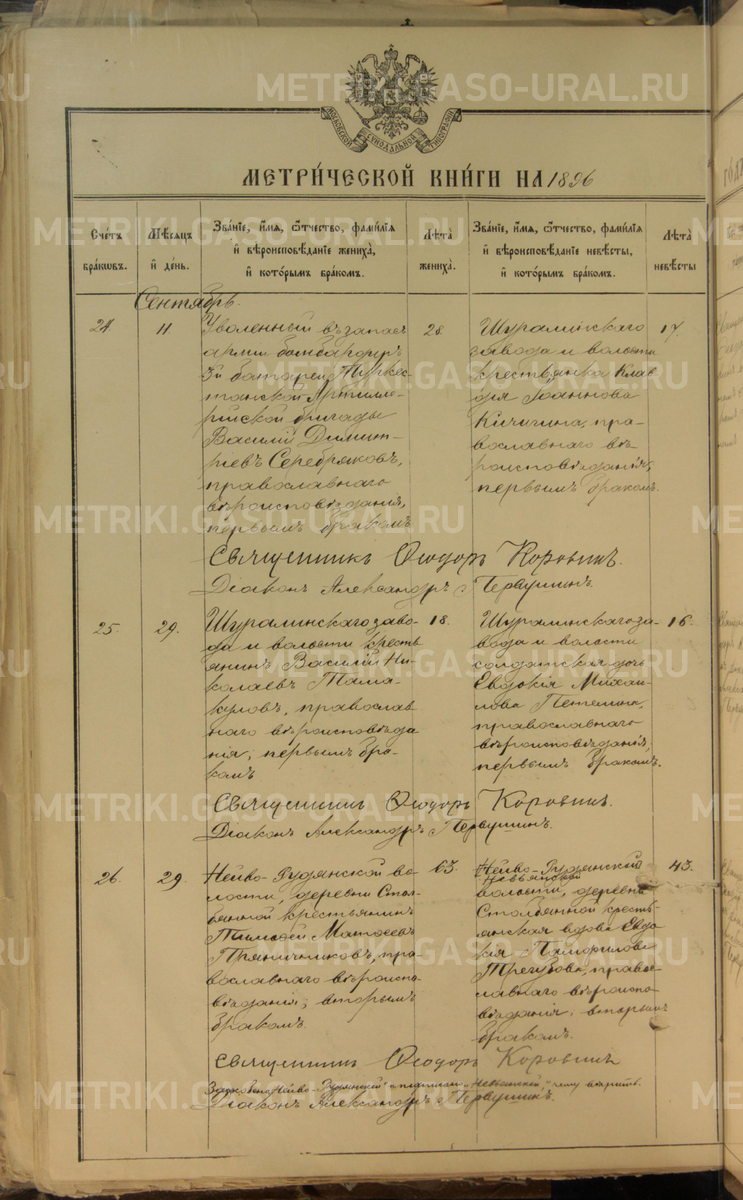 МОСКОВСКОЙ СѴНОДАЛЬНОЙ ТИПОГРАФІИ
МЕТРИ́ЧЕСКОЙ КНИ́ГИ НА 1896
Счетъ бракѡвъ.
Мѣсяцъ и҆ день.
Зва́нїе, и҆́мѧ, ѻ҆́тчество, фамилїѧ и҆ вѣроисповѣданїе жениха̀, и҆ кото́рымъ бра́комъ.
Лѣта жениха̀.
Зва́нїе, и҆́мѧ, ѻ҆́тчество, фамилїѧ и҆ вѣроисповѣданїе невѣсты, и҆ кото́рымъ бра́комъ.
Лѣта невѣсты
Сентябрь.
24
11
Уволенный въ запасъ
армии бомбардиръ
3й батареи Турке-
станской Артилле-
рийской бригады
Василій Димит-
ріевъ Серебряковъ,
православнаго
вѣроисповѣданія,
первымъ бракомъ
28.
Шуралинскаго
завода и волости
крестьянка Клав-
дія Іоаннова
Кичигина, пра-
вославнаго вѣ-
роисповѣданія,
первымъ бракомъ.
17
Священникъ Ѳеодоръ Коровинъ.
Діаконъ Александръ Первушинъ.
25.
29.
Шуралинскаго заво-
да и волости кресть-
янинъ Василій Ни-
колаевъ Тама-
куловъ, православ-
наго вѣроисповѣда
нія, первымъ бра-
комъ
18.
Шуралинскаго за-
вода и волости
солдатская дочь
Евдокія Михаи-
лова Петелина,
православнаго
вѣроисповѣданія,
первымъ бракомъ.
16.
Священникъ Ѳеодоръ Коровинъ.
Діаконъ Александръ Первушинъ.
26.
29.
Нейво-Рудянской во-
лости, деревни Стол-
бянной крестьянинъ
Тимофей Матѳеевъ
Пряничниковъ, пра-
вославнаго вѣроиспо
вѣданія, вторымъ
бракомъ.
63.
Нейво-Рудянской
Невьянской
волости, деревни
Столбянной кресть-
янская вдова Евдо
кія Памфилова
Трегубова, право-
славнаго вѣроиспо
вѣданія, вторымъ
бракомъ.
43.
Священникъ Ѳеодоръ Коровинъ
Зачеркнено „Нейво-Рудянской" и написано „Невьянской", чему вѣрить.
Діаконъ Александръ Первушинъ.
METRIKI.GASO-URAL.RU